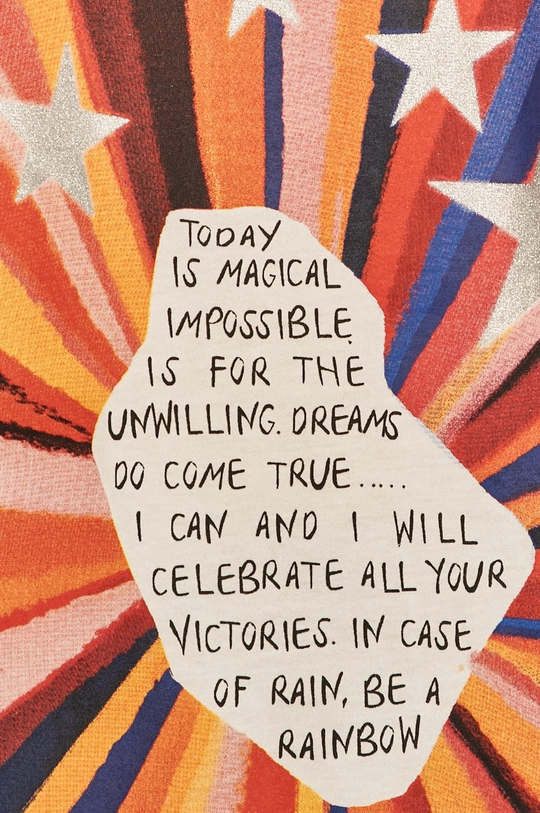 TODAY
IS MAGICAL
IMPOSSIBLE
IS FOR THE
UNWILLING. DREAMS
DO COME TRUE.....
I CAN AND I WILL
CELEBRATE ALL YOUR
VICTORIES. IN CASE
OF RAIN, BE A
RAINBOW